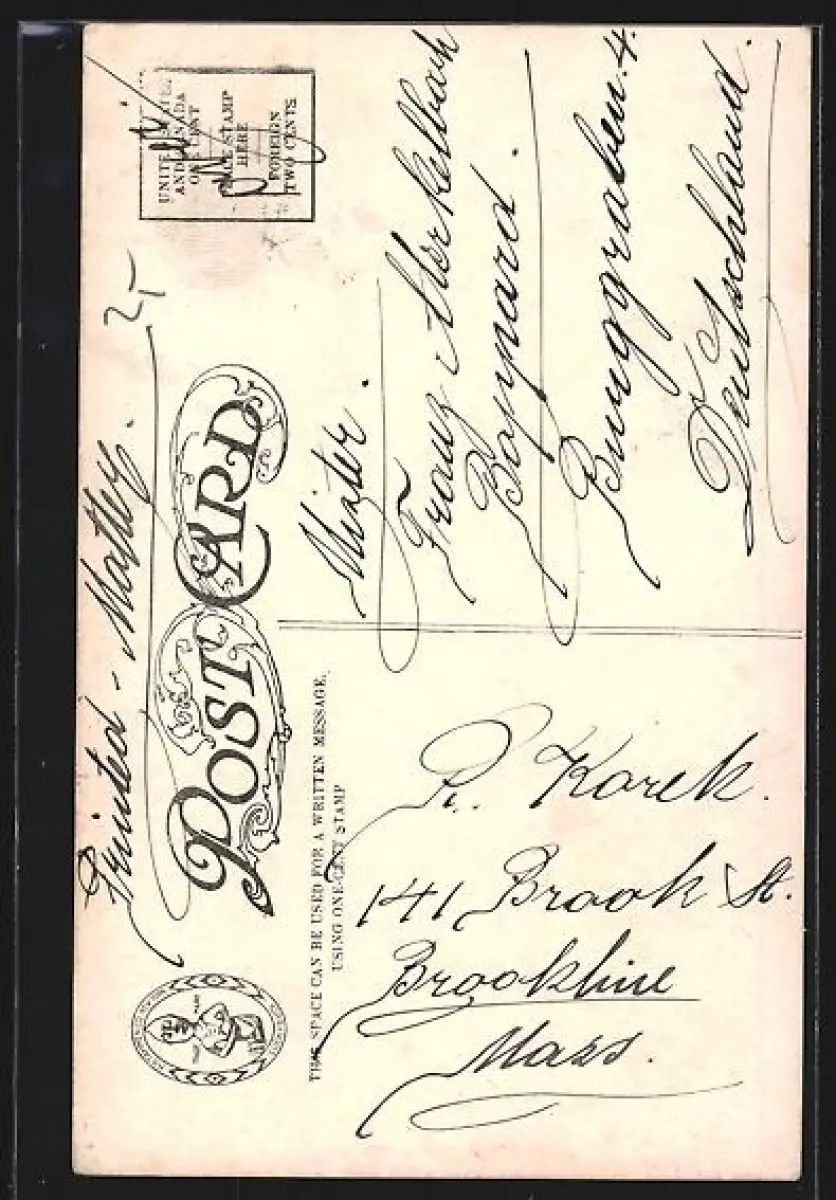 Printed - Matter.
POST CARD
UNITED STATES
AND CANADA
ONE CENT
PLACE STAMP
HERE
FOREIGN
TWO CENTS
THIS SPACE CAN BE USED FOR A WRITTEN MESSAGE,
USING ONE-CENT STAMP
R. Korek.
141 Brook St.
Brookline
Mass.
Mister.
Franz Merkelbach
Boppard.
Burggraben. 4.
Deutschland.